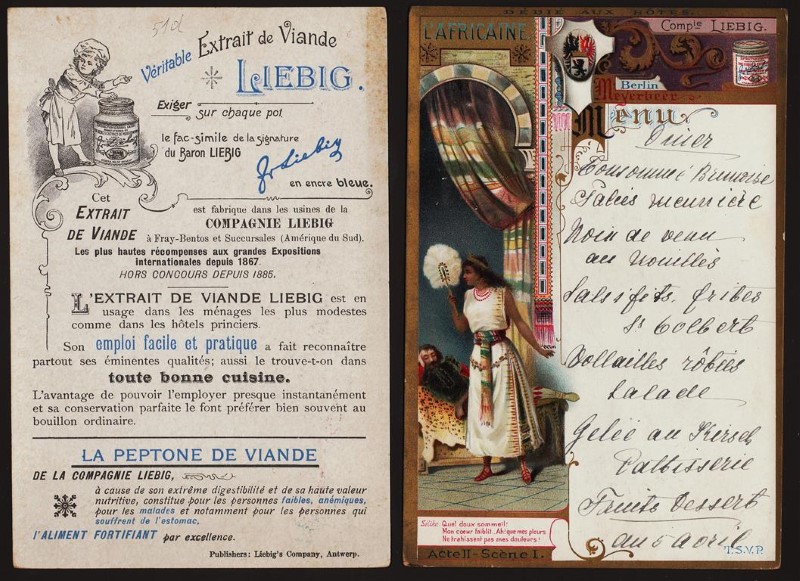 51d
Véritable Extrait de Viande
LIEBIG.
Exiger sur chaque pot
le fac-simile de la signature
du Baron LIEBIG
J v Liebig
en encre bleue.
Cet
EXTRAIT
DE VIANDE
est fabrique dans les usines de la
COMPAGNIE LIEBIG
à Fray-Bentos et Succursales (Amérique du Sud).
Les plus hautes récompenses aux grandes Expositions
Internationales depuis 1867.
HORS CONCOURS DEPUIS 1885.
L'EXTRAIT DE VIANDE LIEBIG est en
usage dans les ménages les plus modestes
comme dans les hôtels princiers.
Son emploi facile et pratique a fait reconnaître
partout ses éminentes qualités; aussi le trouve-t-on dans
toute bonne cuisine.
L'avantage de pouvoir l'employer presque instantanément
et sa conservation parfaite le font préférer bien souvent au
bouillon ordinaire.
LA PEPTONE DE VIANDE
DE LA COMPAGNIE LIEBIG,
à cause de son extrême digestibilité et de sa haute valeur
nutritive, constitue pour les personnes faibles, anémiques,
pour les malades et notamment pour les personnes qui
souffrent de l'estomac,
l'ALIMENT FORTIFIANT par excellence.
Publishers: Liebig's Company, Antwerp.
DÉDIÉ AUX HÔTES.
L'AFRICAINE
Compie LIEBIG.
Berlin
Meyerbeer
Menu
Diner
Consommé Brunoise
Soles meunière
Noix de veau
au nouilles
Salsifits frites
St Colbert
Vollailles rôties
Salade
Gelée au Kirsch
Pattisserie
Fruits Dessert
au 5 avril
T.S.V.P.
Sélika: Quel doux sommeil!
Mon coeur faiblit. Ah! que mes pleurs
Ne trahissent pas mes douleurs!
Acte II - Scène 1.